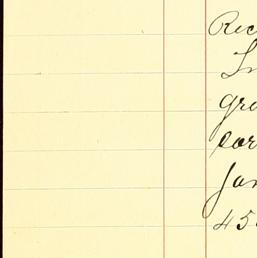 Rec
In
gra
cor
Jan
45